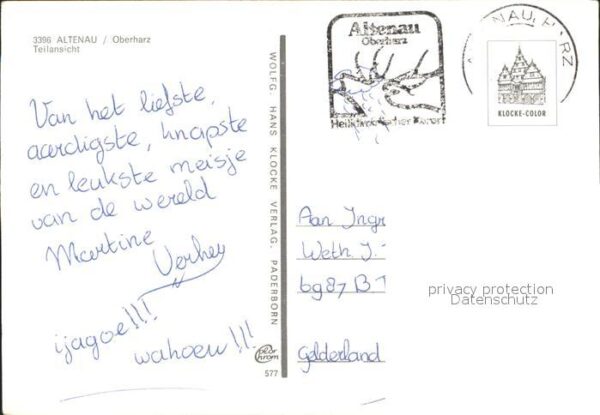 3396 ALTENAU / Oberharz
Teilansicht
Van het liefste,
aardigste, knapste
en leukste meisje
van de wereld
Martine
Verhey
ijagoe!!!
wahoeu!!!
WOLFG. HANS KLOCKE VERLAG, PADERBORN
577
Altenau
Oberharz
Heilklimatischer Kurort
ALTENAU, HARZ
KLOCKE-COLOR
Aan Ingr
Weth J.
6987 B
Gelderland
privacy protection
Datenschutz